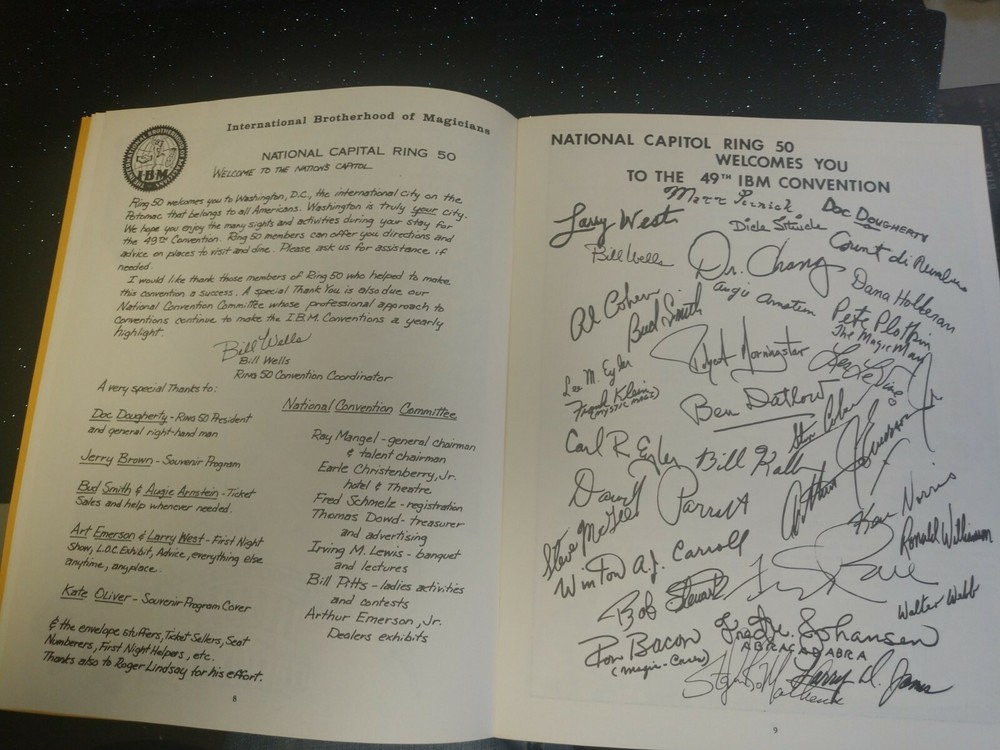 International Brotherhood of Magicians
IBM
NATIONAL CAPITAL RING 50
WELCOME TO THE NATION'S CAPITOL
Ring 50 welcomes you to Washington, D.C., the international city on the
Potomac that belongs to all Americans. Washington is truly your city.
We hope you enjoy the many sights and activities during your stay for
the 49th Convention. Ring 50 members can offer you directions and
advice on places to visit and dine. Please ask us for assistance if
needed.
I would like thank those members of Ring 50 who helped to make
this convention a success. A special Thank You is also due our
National Convention Committee whose professional approach to
conventions continue to make the I.B.M. Conventions a yearly
highlight.
Bill Wells
Bill Wells
Ring 50 Convention Coordinator
A very special Thanks to:
Doc Dougherty - Ring 50 President
and general right-hand man
Jerry Brown - Souvenir Program
Bud Smith & Augie Arnstein - Ticket
Sales and help whenever needed.
Art Emerson & Larry West - First Night
Show, L.O.C. Exhibit, Advice, everything else
anytime, anyplace.
Kate Oliver - Souvenir Program Cover
& the envelope stuffers, Ticket Sellers, Seat
Numberers, First Night Helpers, etc.
Thanks also to Roger Lindsay for his effort.
National Convention Committee
Ray Mangel - general chairman
& talent chairman
Earle Christenberry, Jr.
hotel & Theatre
Fred Schmelz - registration
Thomas Dowd - treasurer
and advertising
Irving M. Lewis - banquet
and lectures
Bill Pitts - ladies activities
and contests
Arthur Emerson, Jr.
Dealers exhibits
8
NATIONAL CAPITOL RING 50
WELCOMES YOU
TO THE 49TH IBM CONVENTION
Doc Dougherty
Larry West
Bill Wells
Dr. Chang
Count di
Dana
Al Cohen
Bud Smith
Augie Arnstein
Pete
The Magic Man
Morningstar
Lee M. Eyler
Frank Klein
(Mystic Magi)
Ben Datlow
Carl R. Eyler
Bill
Arthur Emerson Jr
Daryl Parrott
Steve McGee
Ken Norris
Ronald Williamson
Winton A.J. Carroll
Bob Stewart
Walter Webb
Tom Bacon
(Magic-Cares)
Johansen
ABRACADABRA
Larry D. Jones
9